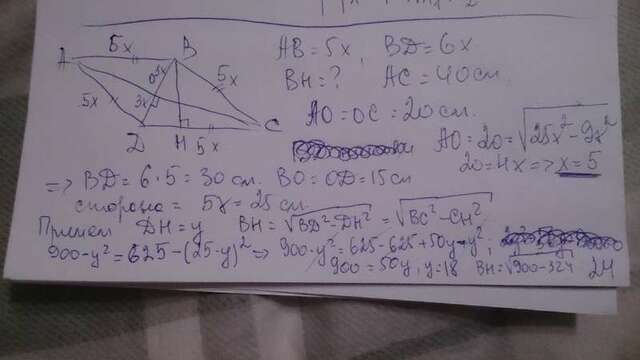 5x
AB = 5x, BD = 6x
A
B
BH = ? AC = 40 см
O
3x
5x
5x
3x
AO = OC = 20 см.
D
H
5x
C
AO = 20 = √25x² - 9x²
20 = 4x => x = 5
=> BD = 6·5 = 30 см. BO = OD = 15 см
сторона = 5x = 25 см.
Примем DH = y BH = √BD² - DH² = √BC² - CH²
900 - y² = 625 - (25 - y)² => 900 - y² = 625 - 625 + 50y - y² ;
900 = 50y, y = 18 BH = √900 - 324 24